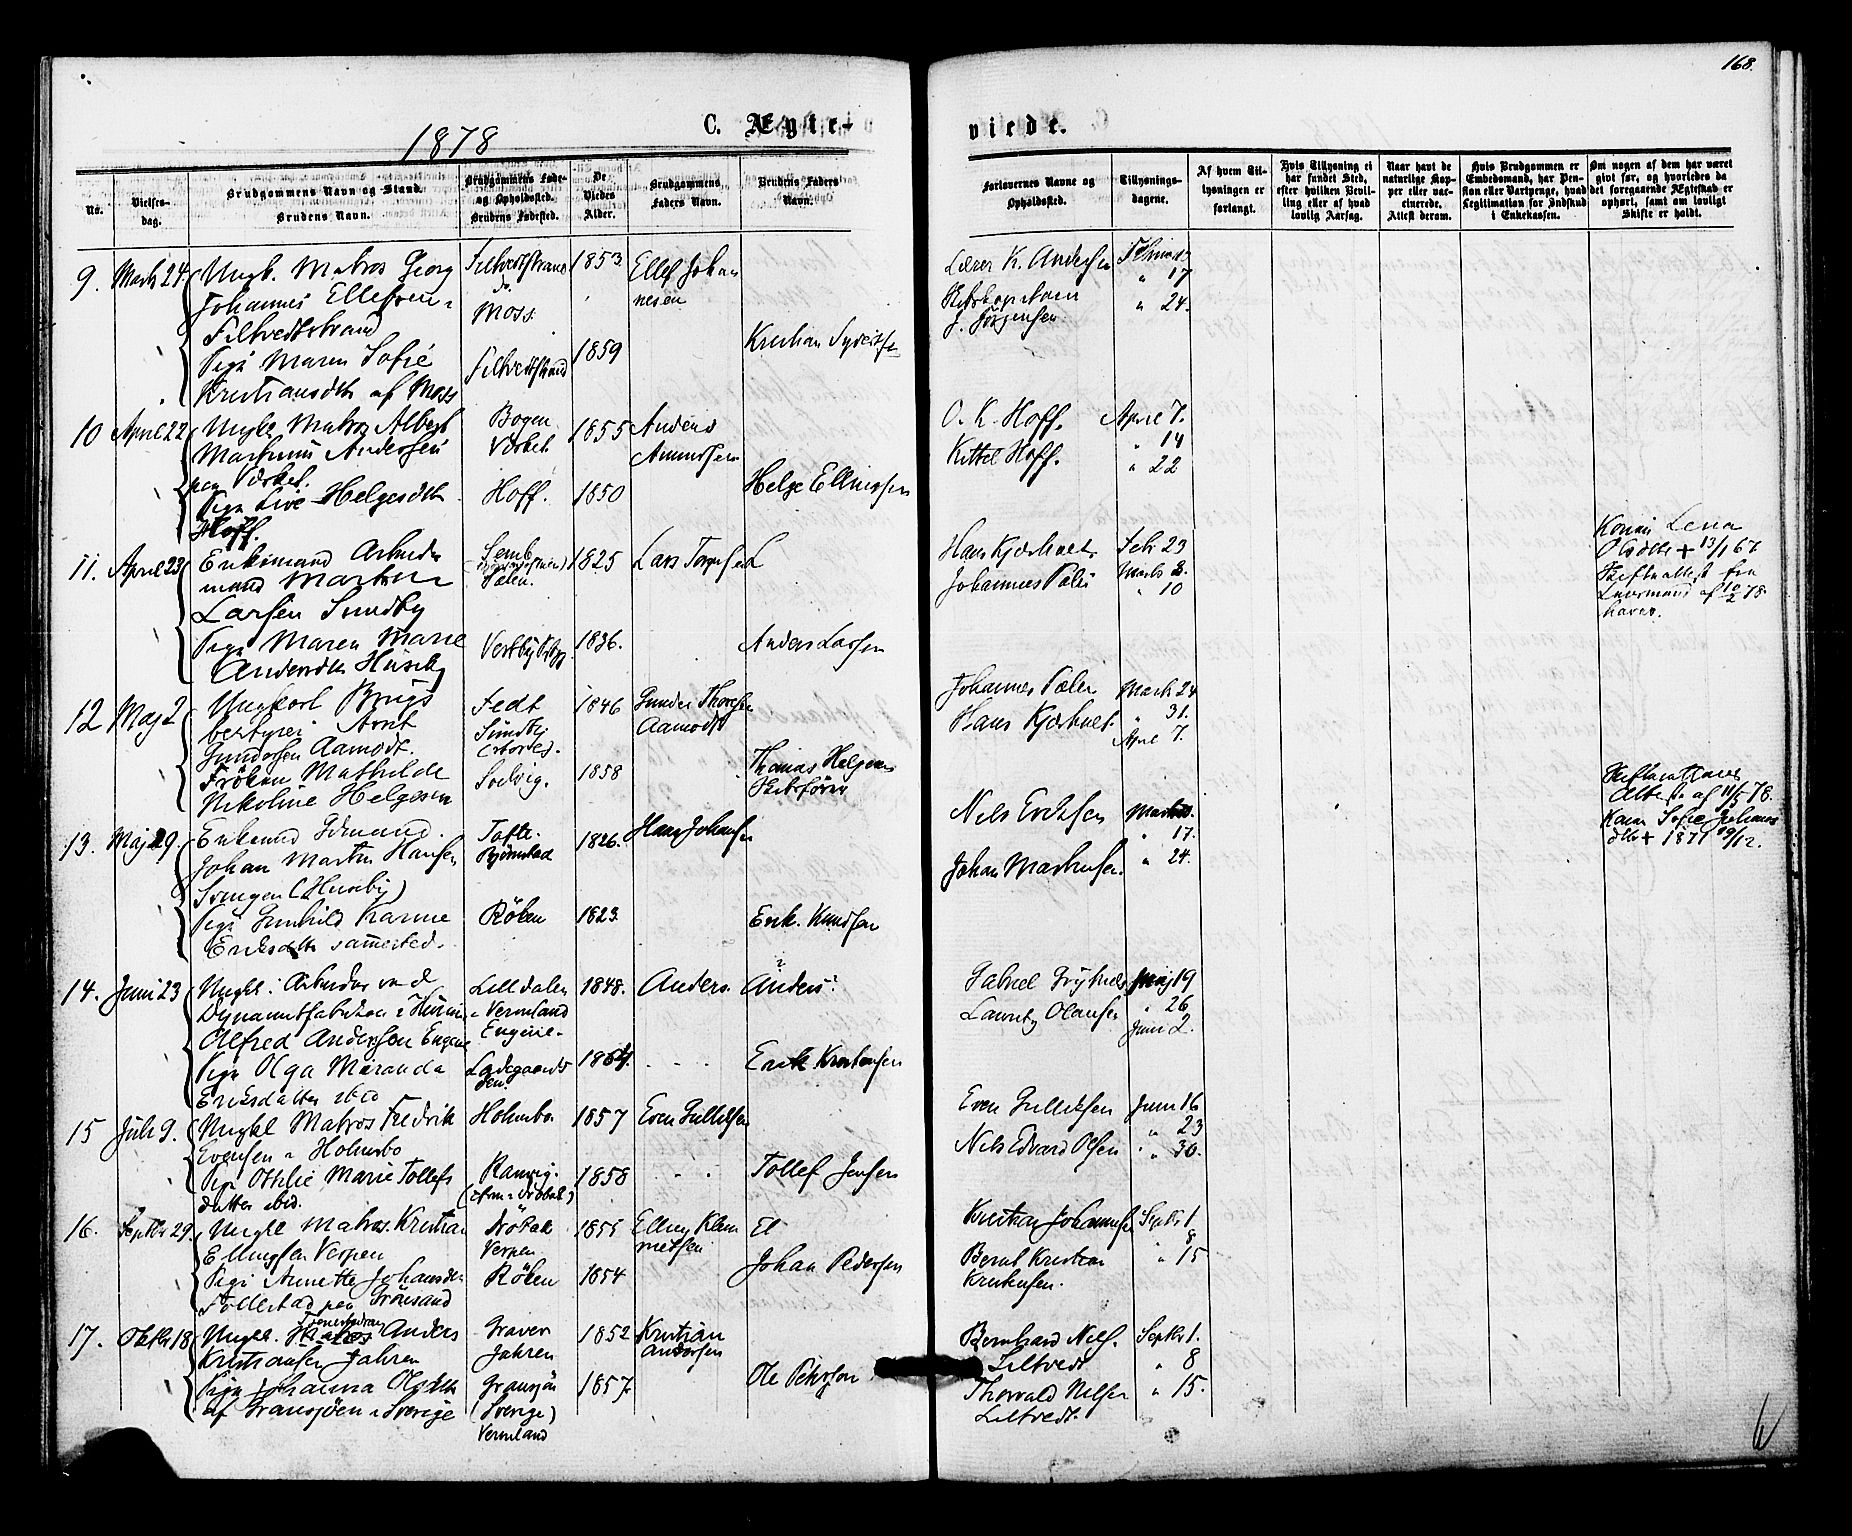 168.
1878
C. Ægte-
viede.
No.
Vielses-
dag.
Brudgommens Navn og Stand.
Brudens Navn.
Brudgommens Føde-
og Opholdssted.
Brudens Fødested.
De
Viedes
Alder.
Brudgommens
Faders Navn.
Brudens Faders
Navn.
Forlovernes Navne og
Opholdssted.
Tillysnings-
dagene.
Af hvem Til-
lysningen er
forlangt.
Hvis Tillysning ei
har fundet Sted,
efter hvilken Bevil-
ling eller af hvad
lovlig Aarsag.
Naar havt de
naturlige Kop-
per eller vac-
cinerede.
Attest derom.
Hvis Brudgommen er
Embedsmand, har Pen-
sion eller Vartpenge, hvad
Legitimation for Indskud
i Enkekassen.
Om nogen af dem har været
gift før, og hvorledes da
det foregaaende Ægteskab er
ophørt, samt om lovligt
Skifte er holdt.
9. Marts 24.
Ungk. Matros Georg
Johannes Ellefsen
Filtvedtstrand
Pige Maren Sofie
Kristiansdtr af Moss
Filtvedtstrand
Moss.
Filtvedtstrand
1853.
1859
Ellef Johan
nesen
Kristian
Lærer K. Andersen
J. Jörgensen
" 17
" 24.
10 April 22
Ungk. Matros Albert
Martinius Andersen
paa Værket.
Pige Live Helgesdtr
Hoff.
Bogen
Værket
Hoff.
1855
1850
Anders
Amundsen
Helge Ellingsen
O. K. Hoff.
Kittel Hoff.
April 7.
" 14
" 22
11. April 23
Enkemand Arbeids
mand Martin
Larsen Sundby
Pige Maren Marie
Andersdtr Huseby
Pælen.
1825
1836.
Lars
Anders Larsen
Hans Kjærholt
Johannes Pælen
Febr 23
Marts 3.
" 10
Lena
Olsdtr + 13/1 67
Skifteattest fra
Lensmand af 10/2 78
haves.
12 Maj 2
Ungkarl Brugs
bestyrer Arnt
Gundersen Aamodt.
Fröken Mathilde
Nikoline Helgesen
Sundby
Solvig.
1846
1858
Gunder Thoresen
Aamodt
Thomas Helgesen
Skibsfører
Johannes Pælen
Hans Kjærholt
Marts 24
" 31.
April 7.
13. Maj 29.
Enkemand
Johan Martin Hansen
(Huseby)
Pige Gunhild Karine
Eriksdatter sammested.
Tofte
Björnstad
Röken
1826.
1823.
Hans Johansen
Erik Knudsen
Nils Eriksen
Johan Martinsen
" 17.
" 24.
Attest af 11/3 78.
Sofie
+ 1871 29/12.
14. Juni 23
Ungk. Arbeider ved
Dynamitfabriken i Hurum
Alfred Andersson
Pige Olga Miranda
Eriksdatter ibid
Lilldalen
i Vermland
1848.
Anders
Anders
Erik Kristensen
Gabriel
Lauritz Olausen
Maj 19
" 26
Juni 2.
15 Juli 9.
Ungkl Matros Fredrik
Evensen i Holmsbo
Pige Othilie Marie Tollefs
datter ibid.
Holmsbo
Ramvig.
1857
1858
Even Gulliksen
Tollef Jensen
Even Gulliksen
Nils Edvard Olsen
Juni 16
" 23
" 30.
16. Septbr 29.
Ungkl Matros Kristian
Ellingsen Verpen
Pige Annette Johansdtr
Follestad paa Grönsand
Dröbak
Verpen
Röken
1855
1854
Elling Klem
metsen
El
Johan Pedersen
Kristian Johannesen
Bernt Kristian
Kristensen.
Septbr 1
" 8
" 15
17. Oktbr 18
Ungkl. Anders
Kristiansen Jahren
Pige Johanna Olsdtr
af Gransjöen i Sverige
Graven
Jahren
Gransjön
(Sverige)
Vermland
1852
1857.
Kristian
Andersen
Ole Petersson
Bernhard Nils.
Filtvedt
Thorvald Nilsen
Filtvedt.
Septbr 1.
" 8
" 15.